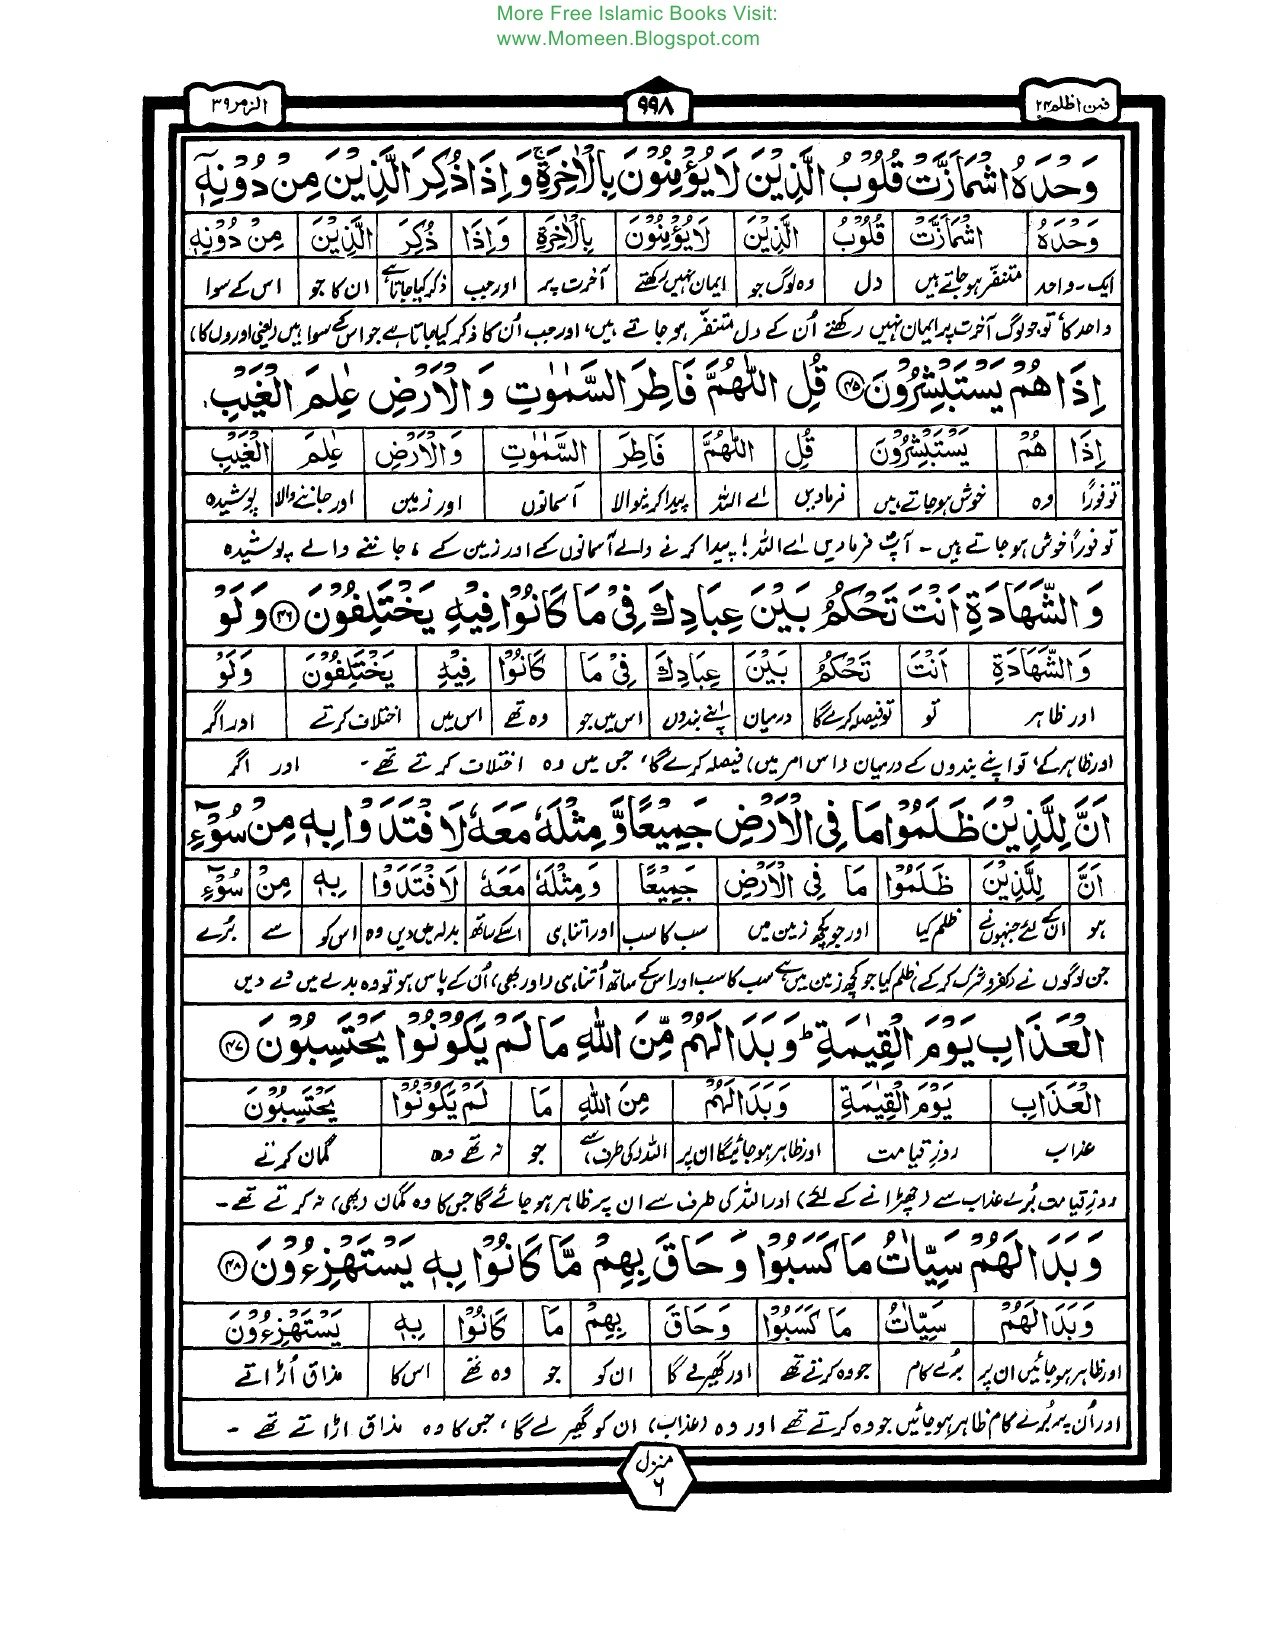 More Free Islamic Books Visit:
www.Momeen.Blogspot.com
فمن اظلم ۲۴
۹۹۸
الزمر ۳۹
وَحْدَهُ اشْمَاَزَّتْ قُلُوْبُ الَّذِيْنَ لَا يُؤْمِنُوْنَ بِالْاٰخِرَةِ ۚ وَاِذَا ذُكِرَ الَّذِيْنَ مِنْ دُوْنِهٖٓ
وَحْدَهُ اشْمَاَزَّتْ قُلُوْبُ الَّذِيْنَ لَا يُؤْمِنُوْنَ بِالْاٰخِرَةِ وَاِذَا ذُكِرَ الَّذِيْنَ مِنْ دُوْنِهٖٓ
ایک۔واحد متنفّر ہوجاتے ہیں دل وہ لوگ جو ایمان نہیں رکھتے آخرت پر اور جب ذکر کیا جاتا ہے ان کا جو اس کے سوا
واحد کا، تو جو لوگ آخرت پر ایمان نہیں رکھتے اُن کے دل متنفّر ہو جاتے ہیں، اور جب اُن کا ذکر کیا جاتا ہے جو اس کے سوا ہیں (یعنی اوروں کا)
اِذَا هُمْ يَسْتَبْشِرُوْنَ ۴۵ قُلِ اللّٰهُمَّ فَاطِرَ السَّمٰوٰتِ وَالْاَرْضِ عٰلِمَ الْغَيْبِ
اِذَا هُمْ يَسْتَبْشِرُوْنَ قُلِ اللّٰهُمَّ فَاطِرَ السَّمٰوٰتِ وَالْاَرْضِ عٰلِمَ الْغَيْبِ
تو فورًا وہ خوش ہوجاتے ہیں فرمادیں اے اللہ پیدا کرنیوالا آسمانوں اور زمین اور جاننے والا پوشیدہ
تو فورًا خوش ہو جاتے ہیں ۔ آپؐ فرما دیں اے اللہ! پیدا کرنے والے آسمانوں کے اور زمین کے، جاننے والے پوشیدہ
وَالشَّهَادَةِ اَنْتَ تَحْكُمُ بَيْنَ عِبَادِكَ فِيْ مَا كَانُوْا فِيْهِ يَخْتَلِفُوْنَ ۴۶ وَلَوْ
وَالشَّهَادَةِ اَنْتَ تَحْكُمُ بَيْنَ عِبَادِكَ فِيْ مَا كَانُوْا فِيْهِ يَخْتَلِفُوْنَ وَلَوْ
اور ظاہر تو تو فیصلہ کرے گا درمیان اپنے بندوں اس میں جو وہ تھے اس میں اختلاف کرتے اور اگر
اور ظاہر کے، تو اپنے بندوں کے درمیان (اس امر میں) فیصلہ کرے گا، جس میں وہ اختلاف کرتے تھے۔ اور اگر
اَنَّ لِلَّذِيْنَ ظَلَمُوْا مَا فِي الْاَرْضِ جَمِيْعًا وَّمِثْلَهٗ مَعَهٗ لَافْتَدَوْا بِهٖ مِنْ سُوْٓءِ
اَنَّ لِلَّذِيْنَ ظَلَمُوْا مَا فِي الْاَرْضِ جَمِيْعًا وَمِثْلَهٗ مَعَهٗ لَافْتَدَوْا بِهٖ مِنْ سُوْٓءِ
ہو ان کے لئے جنہوں نے ظلم کیا اور جو کچھ زمین میں سب کا سب اور اتنا ہی اسکے ساتھ بدلہ میں دیں وہ اس کو سے بُرے
جن لوگوں نے (کفر و شرک کرکے) ظلم کیا جو کچھ زمین میں ہے سب کا سب اور اس کے ساتھ اُتنا ہی (اور بھی) اُن کے پاس ہو تو وہ بدلے میں دے دیں
الْعَذَابِ يَوْمَ الْقِيٰمَةِ ۭ وَبَدَا لَهُمْ مِّنَ اللّٰهِ مَا لَمْ يَكُوْنُوْا يَحْتَسِبُوْنَ ۴۷
الْعَذَابِ يَوْمَ الْقِيٰمَةِ وَبَدَا لَهُمْ مِنَ اللّٰهِ مَا لَمْ يَكُوْنُوْا يَحْتَسِبُوْنَ
عذاب روزِ قیامت اور ظاہر ہوجائیگا ان پر اللہ کی طرف سے جو نہ تھے وہ گمان کرتے
روزِ قیامت بُرے عذاب سے (چھڑانے کے لئے) اور اللہ کی طرف سے ان پر ظاہر ہو جائے گا جس کا وہ گمان (بھی) نہ کرتے تھے۔
وَبَدَا لَهُمْ سَيِّاٰتُ مَا كَسَبُوْا وَحَاقَ بِهِمْ مَّا كَانُوْا بِهٖ يَسْتَهْزِءُوْنَ ۴۸
وَبَدَا لَهُمْ سَيِّاٰتُ مَا كَسَبُوْا وَحَاقَ بِهِمْ مَا كَانُوْا بِهٖ يَسْتَهْزِءُوْنَ
اور ظاہر ہو جائیں ان پر بُرے کام جو وہ کرتے تھے اور گھیر لے گا ان کو جو وہ تھے اس کا مذاق اُڑاتے
اور اُن پر بُرے کام ظاہر ہوجائیں جو وہ کرتے تھے اور وہ (عذاب) ان کو گھیر لے گا، جس کا وہ مذاق اڑاتے تھے ۔
منزل ۶